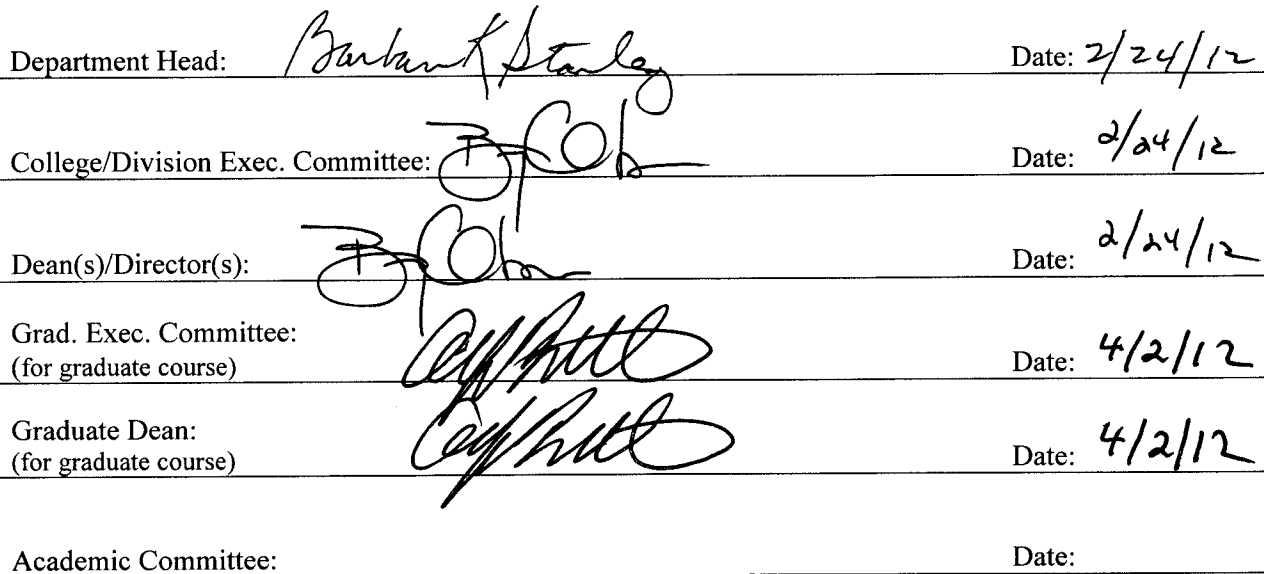 Department Head: Barbara K Stanley Date: 2/24/12
College/Division Exec. Committee: Date: 2/24/12
Dean(s)/Director(s): Date: 2/24/12
Grad. Exec. Committee:
(for graduate course) Date: 4/2/12
Graduate Dean:
(for graduate course) Date: 4/2/12
Academic Committee: Date: